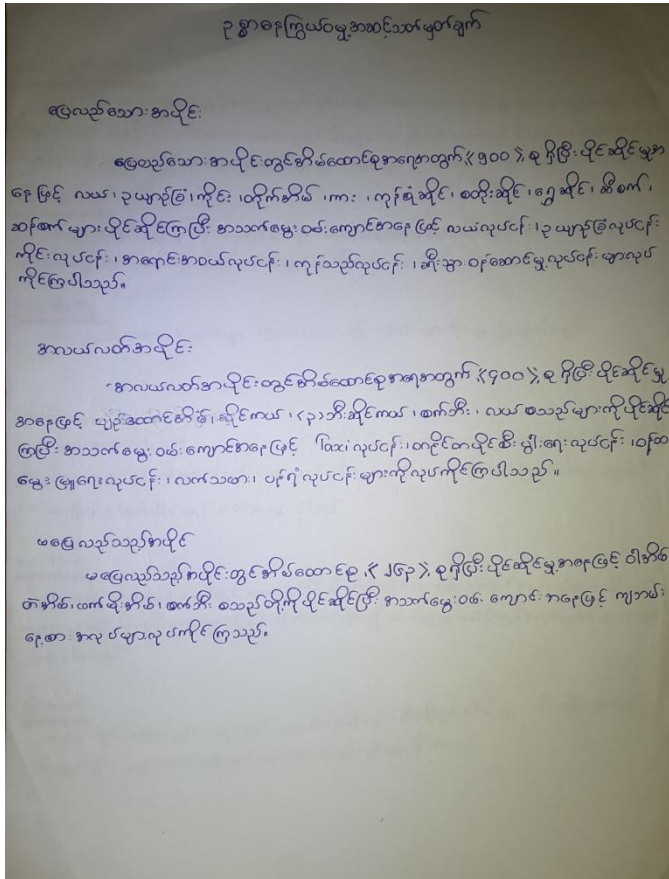 ဥစ္စာဓနကြွယ်ဝမှုအဆင့်သတ်မှတ်ချက်
ပြေလည်သောအပိုင်း
ပြေလည်သောအပိုင်းတွင်အိမ်ထောင်စုအရေအတွက်《၅၀၀》စုရှိပြီးပိုင်ဆိုင်မှုအ
နေဖြင့် လယ်၊ဥယျာဉ်ခြံ၊ကိုင်း၊တိုက်အိမ်၊ကား၊ကုန်စုံဆိုင်၊စတိုးဆိုင်၊ရွှေဆိုင်၊ဆီစက်၊
ဆန်စက်များပိုင်ဆိုင်ကြပြီး အသက်မွေးဝမ်းကျောင်အနေဖြင့် လယ်လုပ်ငန်း၊ဥယျာဉ်ခြံလုပ်ငန်း
ကိုင်းလုပ်ငန်း၊အရောင်းအဝယ်လုပ်ငန်း၊ကုန်သည်လုပ်ငန်း၊ဆိုးသွားဝန်ဆောင်မှုလုပ်ငန်းများလုပ်
ကိုင်ကြပါသည်။
အလယ်လတ်အပိုင်း
အလယ်လတ်အပိုင်းတွင်အိမ်ထောင်စုအရေအတွက်《၄၀၀》စုရှိပြီးပိုင်ဆိုင်မှု
အနေဖြင့် ပျဉ်ထောင်အိမ်၊ဆိုင်ကယ်၊《၃》ဘီးဆိုင်ကယ်၊စက်ဘီး၊လယ်စသည်များကိုပိုင်ဆိုင်
ကြပြီးအသက်မွေးဝမ်းကျောင်အနေဖြင့် Taxiလုပ်ငန်း၊တနိုင်တပိုင်စီးပွါးရေးလုပ်ငန်း၊
မွေးမြူရေးလုပ်ငန်း၊လက်သမား၊ပန်ရံလုပ်ငန်းများကိုလုပ်ကိုင်ကြပါသည်။
မပြေလည်သည်အပိုင်
မပြေလည်သည်အပိုင်းတွင်အိမ်ထောင်စု《၂၆၃》စုရှိပြီးပိုင်ဆိုင်မှုအနေဖြင့် ဝါးအိမ်
တဲအိမ်၊ဖက်မိုးအိမ်၊စက်ဘီးစသည်တို့ကိုပိုင်ဆိုင်ပြီးအသက်မွေးဝမ်းကျောင်းအနေဖြင့် ကျဘမ်း
နေ့စားအလုပ်များလုပ်ကိုင်ကြသည်။